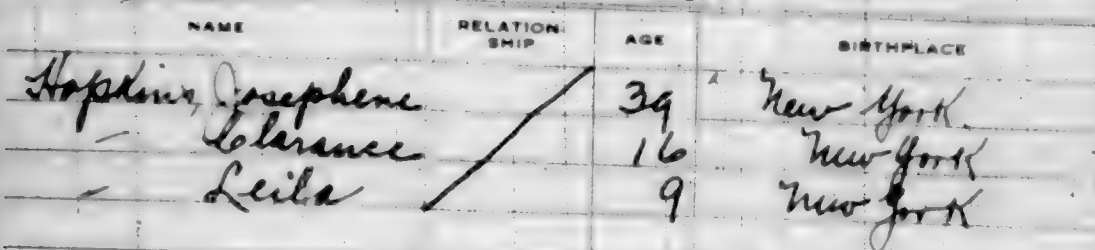 NAME RELATION- SHIP AGE BIRTHPLACE
Hopkins, Josephene 39 New York
" Clarance 16 New York
" Leila 9 New York